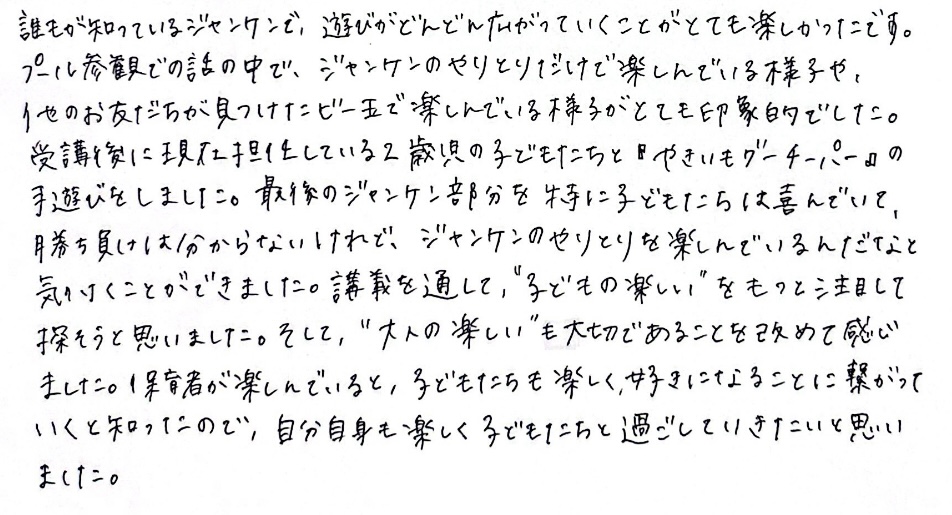 誰もが知っているジャンケンで、遊びがどんどん広がっていくことがとても楽しかったです。
プール参観での話の中で、ジャンケンのやりとりだけで楽しんでいる様子や、
他のお友だちが見つけたビー玉で楽しんでいる様子がとても印象的でした。
受講後に現在担任している2歳児の子どもたちと『やきいもグーチーパー』の
手遊びをしました。最後のジャンケン部分を特に子どもたちは喜んでいて、
勝ち負けは分からないけれど、ジャンケンのやりとりを楽しんでいるんだなと
気付くことができました。講義を通して、"子どもの楽しい"をもっと注目して
探そうと思いました。そして、"大人の楽しい"も大切であることを改めて感じ
ました。保育者が楽しんでいると、子どもたちも楽しく、好きになることに繋がって
いくと知ったので、自分自身も楽しく子どもたちと過ごしていきたいと思い
ました。